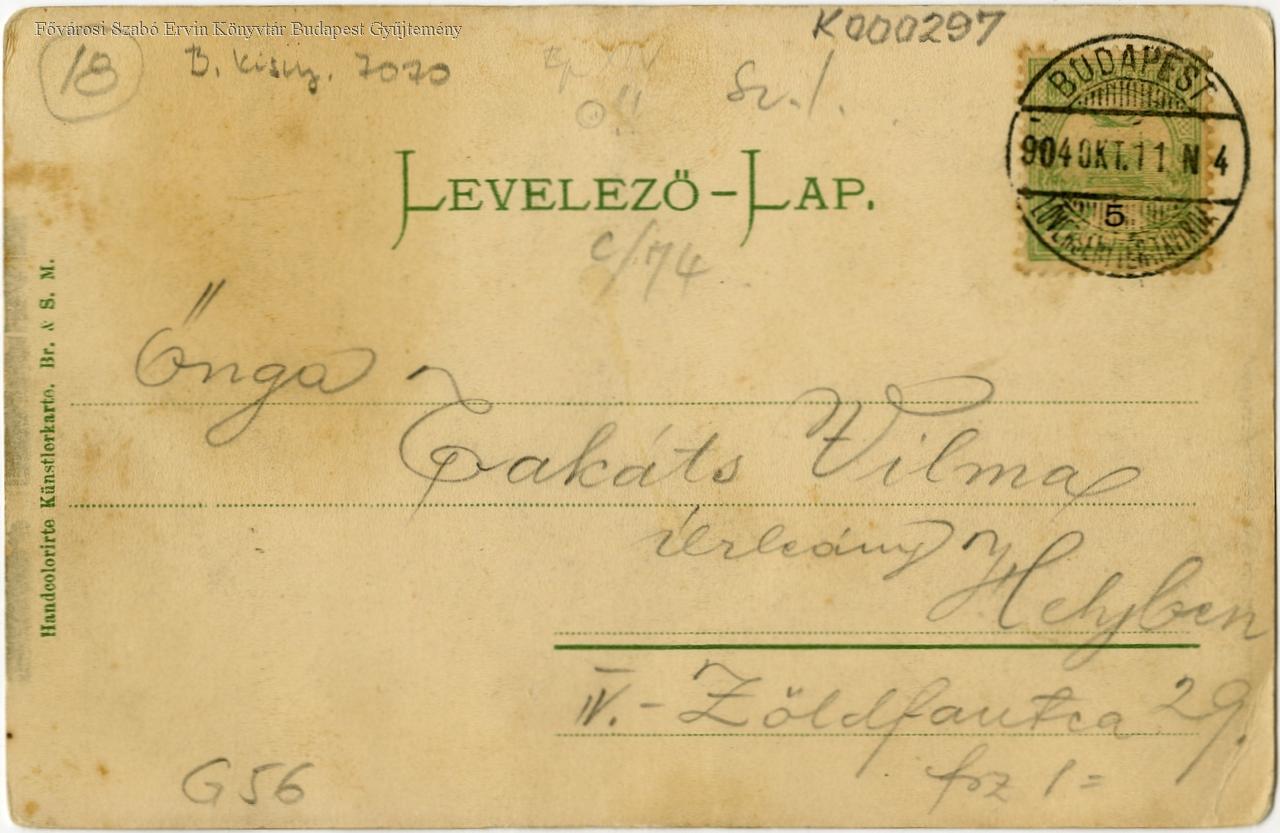 Fővárosi Szabó Ervin Könyvtár Budapest Gyűjtemény
K000297
18
B. kisny. 7070
Sz. l.
BUDAPEST
904 OKT. 11 N 4
5
LEVELEZŐ-LAP.
C/74
Handcolorirte Künstlerkarte. Br. & S. M.
Őnga
Takáts Vilma
úrleány Helyben
IV.- Zöldfautca 29.
fsz 1=
G56